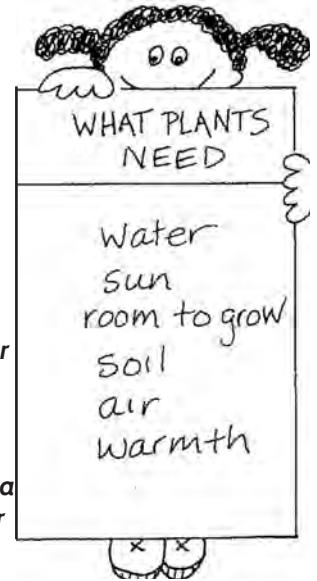 WHAT PLANTS
NEED
water
sun
room to grow
soil
air
warmth
r
a
r